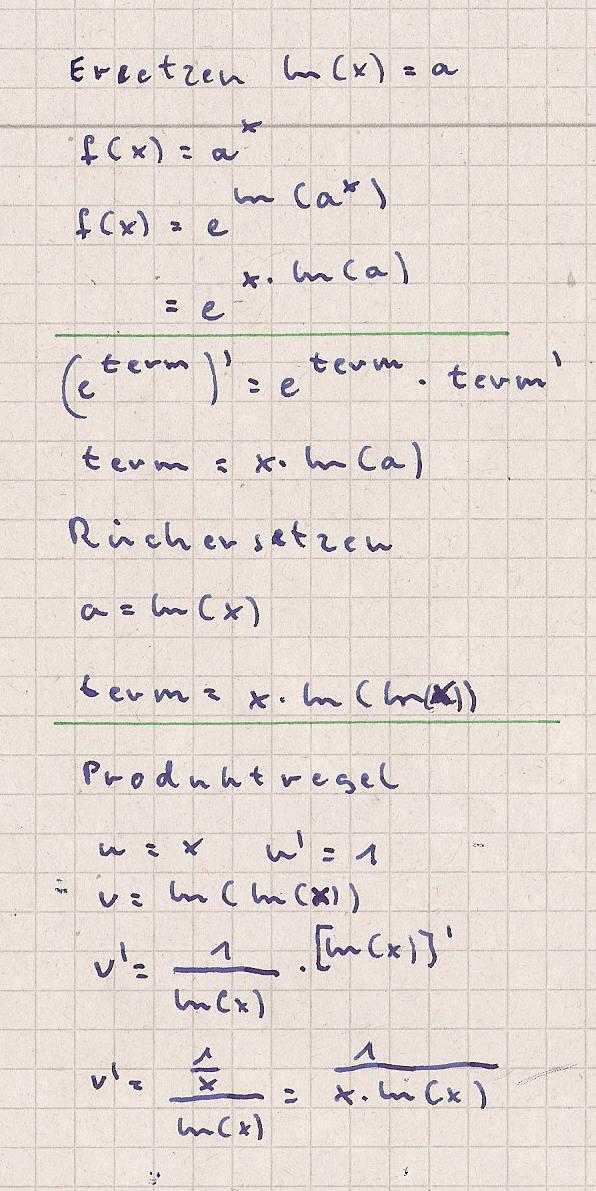 Ersetzen ln(x) = a
f(x) = a^x
f(x) = e^ln(a^x)
= e^x·ln(a)
(e^term)' = e^term · term'
term = x·ln(a)
Rückersetzen
a = ln(x)
term = x·ln(ln(x))
Produktregel
u = x u' = 1
v = ln(ln(x))
v' = 1/ln(x) · [ln(x)]'
v' = (1/x)/ln(x) = 1/(x·ln(x))